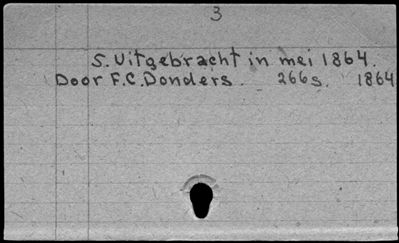 3
S. Uitgebracht in mei 1864.
Door F.C. Donders. 266s. 1864